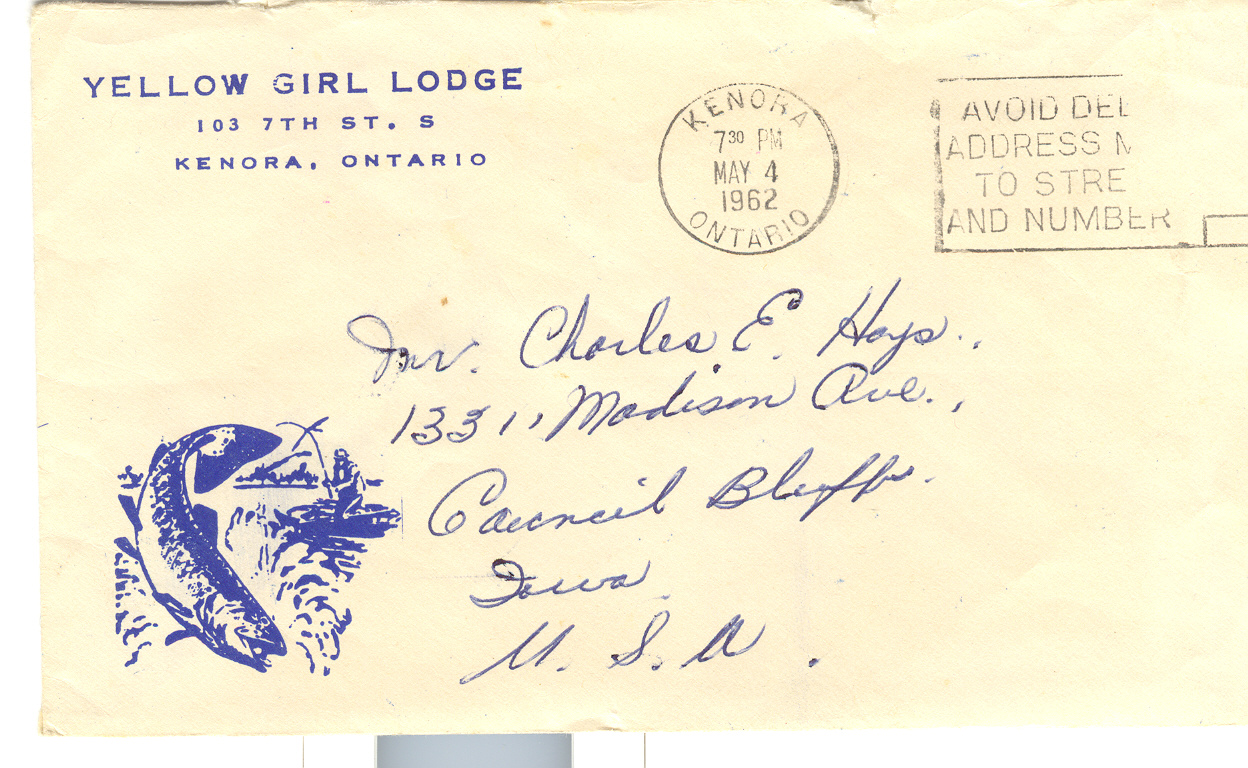 YELLOW GIRL LODGE
103 7TH ST. S
KENORA, ONTARIO
KENORA
7³⁰ PM
MAY 4
1962
ONTARIO
AVOID DEL
ADDRESS M
TO STRE
AND NUMBER
Mr. Charles E. Hays.,
1331, Madison Ave.,
Council Bluffs.
Iowa
U. S. A.